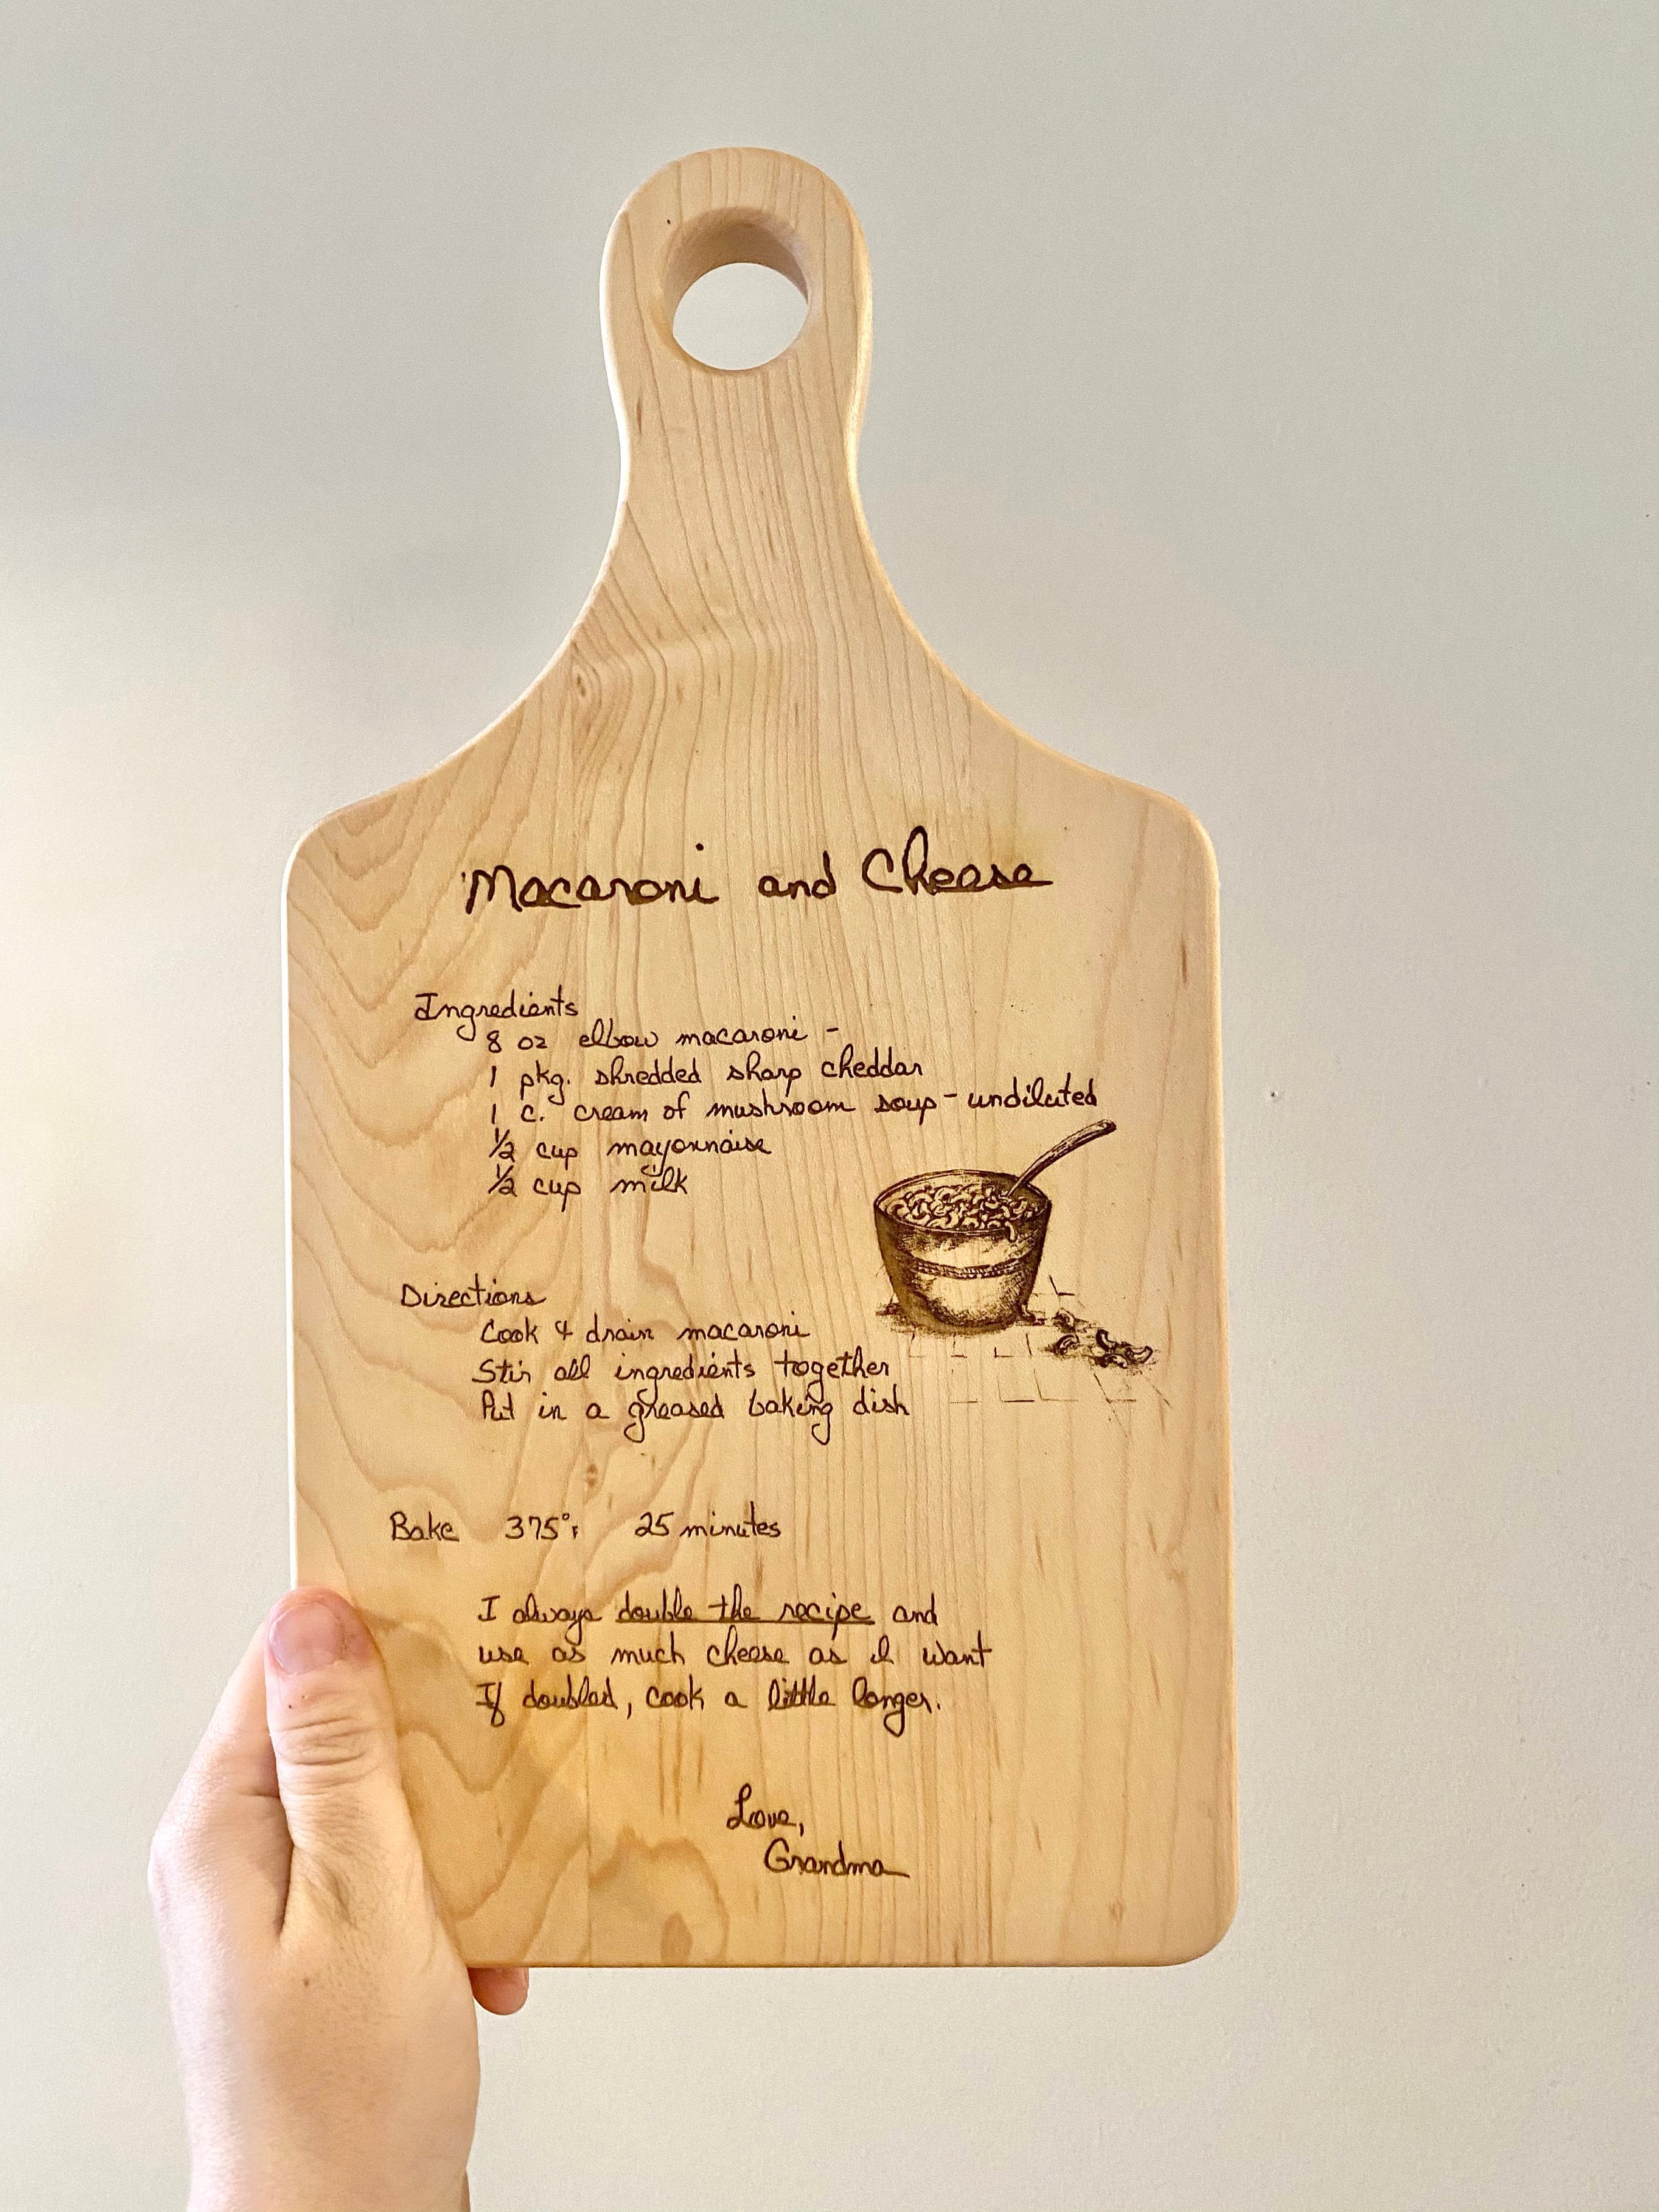 Macaroni and Cheese
Ingredients
8 oz elbow macaroni -
1 pkg. shredded sharp cheddar
1 c. cream of mushroom soup - undiluted
1/2 cup mayonnaise
1/2 cup milk
Directions
Cook & drain macaroni
Stir all ingredients together
Put in a greased baking dish
Bake 375°F 25 minutes
I always double the recipe and
use as much cheese as I want
If doubled, cook a little longer.
Love,
Grandma